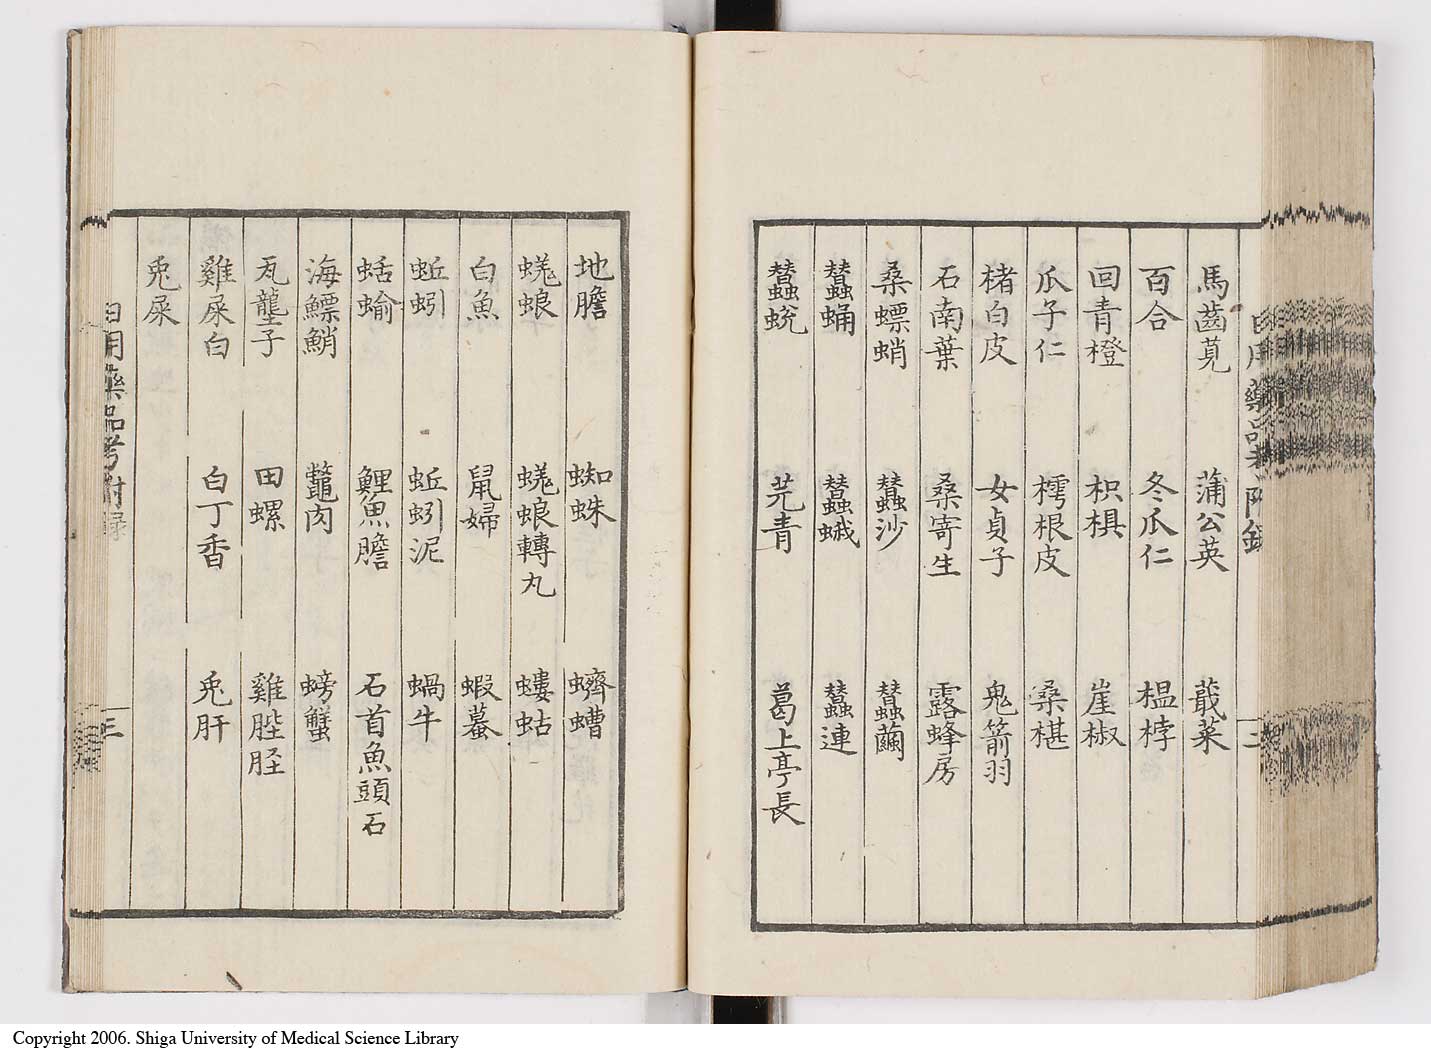 馬齒莧 蒲公英 蕺菜
百合 冬瓜仁 榲桲
回青橙 枳椇 崖椒
瓜子仁 樗根皮 桑椹
楮白皮 女貞子 鬼箭羽
石南葉 桑寄生 露蜂房
桑螵蛸 蠶沙 蠶繭
蠶蛹 蠶蛾 蠶連
蠶蛻 芫青 葛上亭長
日用藥品考附錄
地膽 蜘蛛 蠐螬
蜣蜋 蜣蜋轉丸 螻蛄
白魚 鼠婦 蝦蟇
蚯蚓 蚯蚓泥 蝸牛
蛞蝓 鯉魚膽 石首魚頭石
海鰾鮹 鼈肉 螃蟹
瓦壟子 田螺 雞䏶胵
雞屎白 白丁香 兎肝
兎屎
日用藥品考附錄 三
Copyright 2006. Shiga University of Medical Science Library